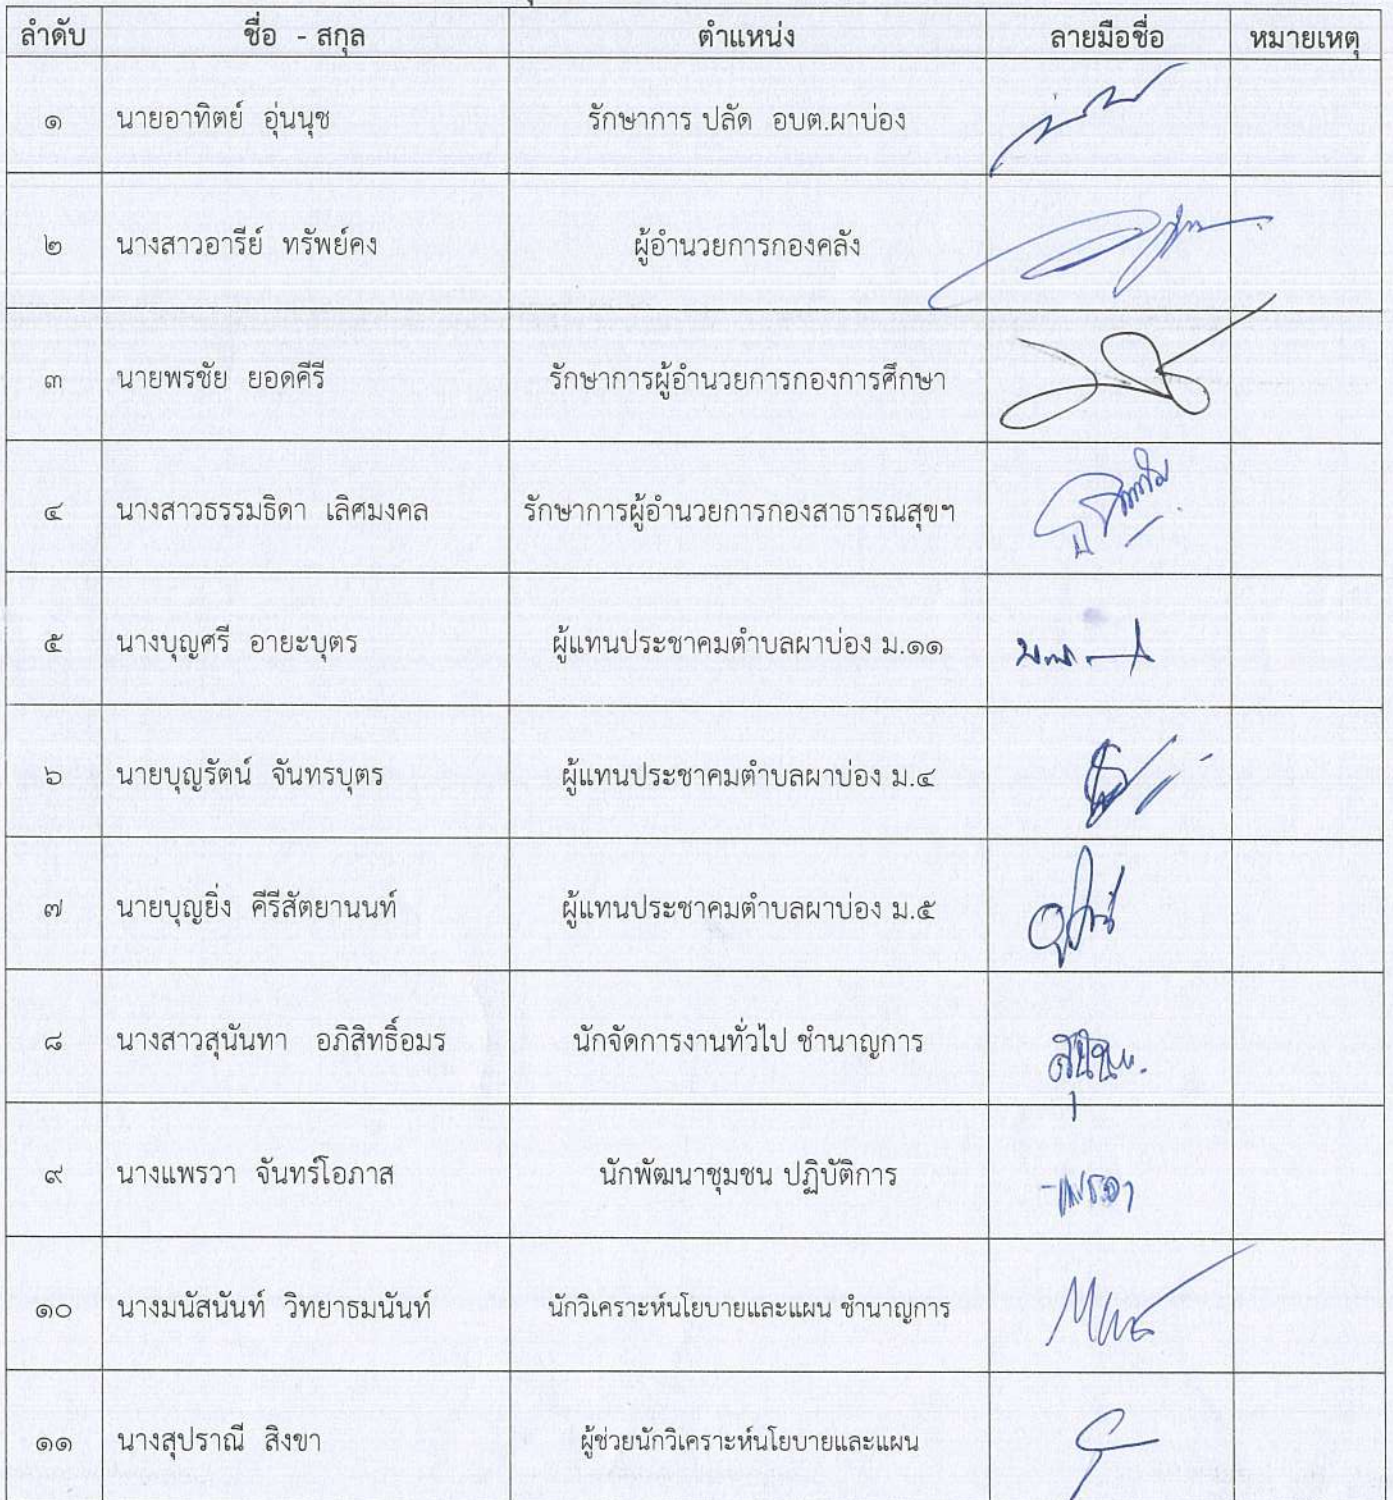 ลำดับ ชื่อ - สกุล ตำแหน่ง ลายมือชื่อ หมายเหตุ
๑ นายอาทิตย์ อุ่นนุช รักษาการ ปลัด อบต.ผาบ่อง
๒ นางสาวอารีย์ ทรัพย์คง ผู้อำนวยการกองคลัง
๓ นายพรชัย ยอดคีรี รักษาการผู้อำนวยการกองการศึกษา
๔ นางสาวธรรมธิดา เลิศมงคล รักษาการผู้อำนวยการกองสาธารณสุขฯ
๕ นางบุญศรี อายะบุตร ผู้แทนประชาคมตำบลผาบ่อง ม.๑๑
๖ นายบุญรัตน์ จันทรบุตร ผู้แทนประชาคมตำบลผาบ่อง ม.๔
๗ นายบุญยิ่ง คีรีสัตยานนท์ ผู้แทนประชาคมตำบลผาบ่อง ม.๕
๘ นางสาวสุนันทา อภิสิทธิ์อมร นักจัดการงานทั่วไป ชำนาญการ
๙ นางแพรวา จันทร์โอภาส นักพัฒนาชุมชน ปฏิบัติการ
๑๐ นางมนัสนันท์ วิทยาธมนันท์ นักวิเคราะห์นโยบายและแผน ชำนาญการ
๑๑ นางสุปราณี สิงขา ผู้ช่วยนักวิเคราะห์นโยบายและแผน